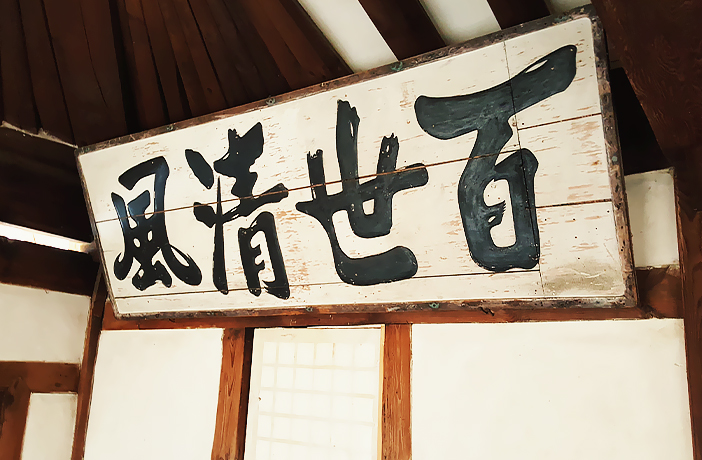 百世清風